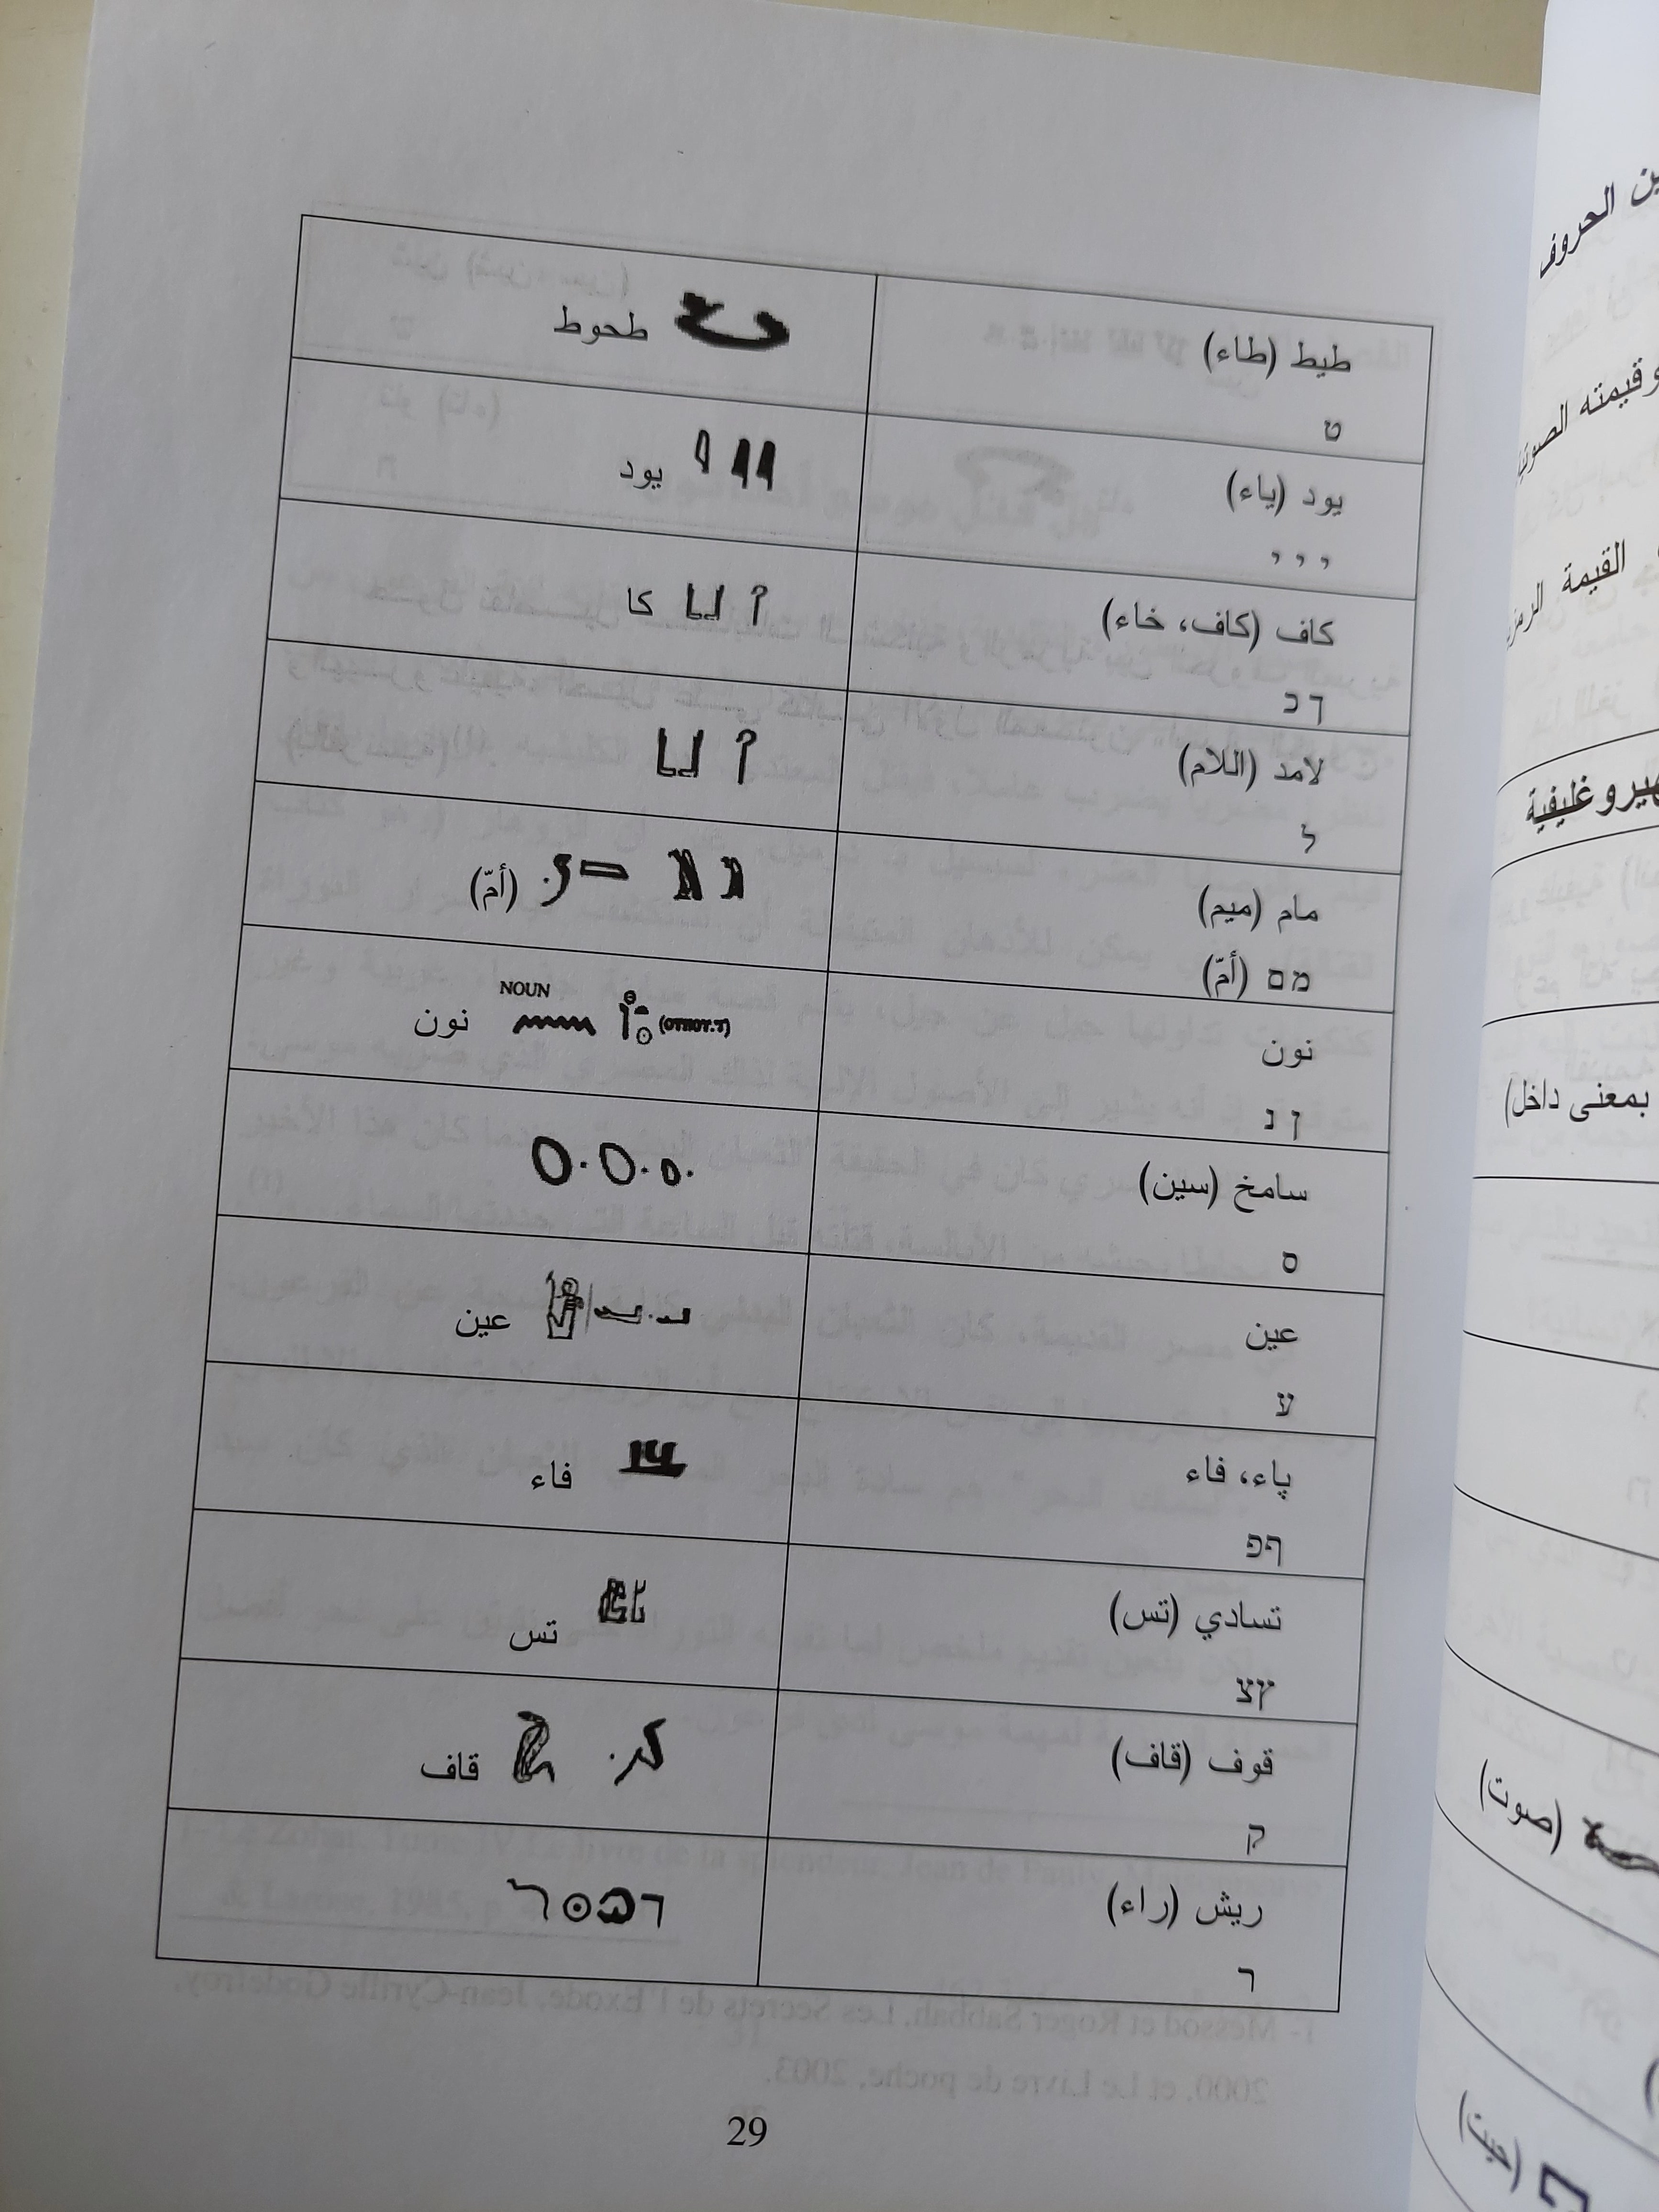 طيط (طاء) طحوط
ט
يود (ياء) يود
, , ,
كاف (كاف، خاء) كا
כ ד
لامد (اللام)
ל
مام (ميم) (أمّ)
מם (أمّ)
NOUN
نون نون
נ ן
سامخ (سين)
ס
عين عين
ע
پاء، فاء فاء
פף
تسادي (تس) تس
צץ
قوف (قاف) قاف
ק
ريش (راء)
ר
29
ين الحروف
القيمة
هيروغليفية
بمعنى داخل)
(صوت)